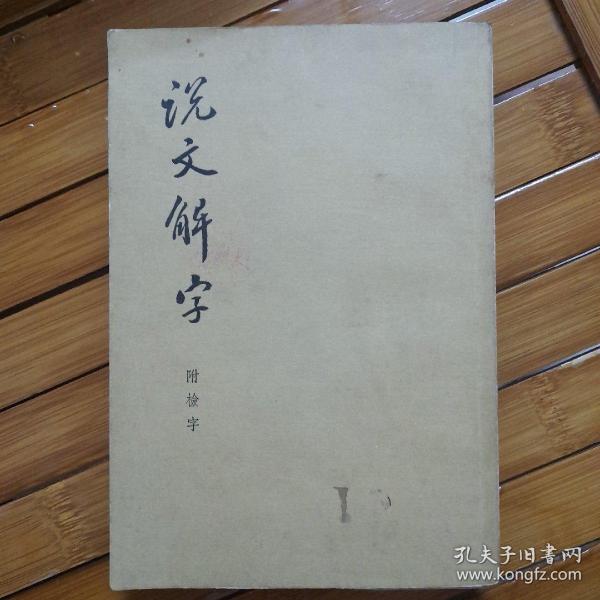 说文解字
附檢字
孔夫子旧書网
www.kongfz.com